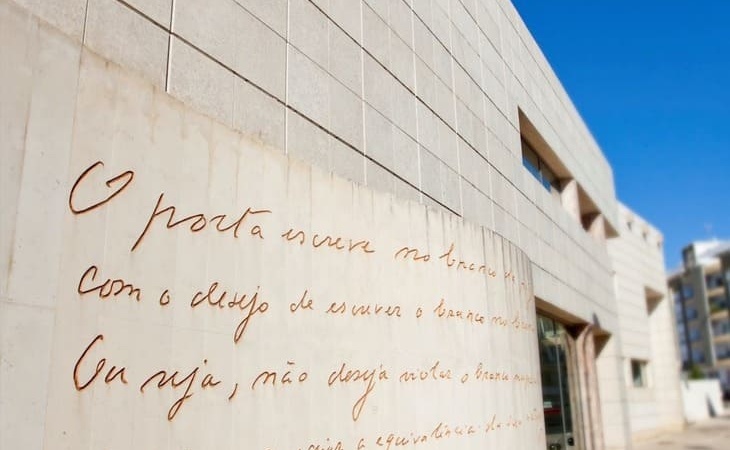 O poeta escreve no branco
com o desejo de escrever o branco no
Ou seja, não deseja violar o branco
a equivalência